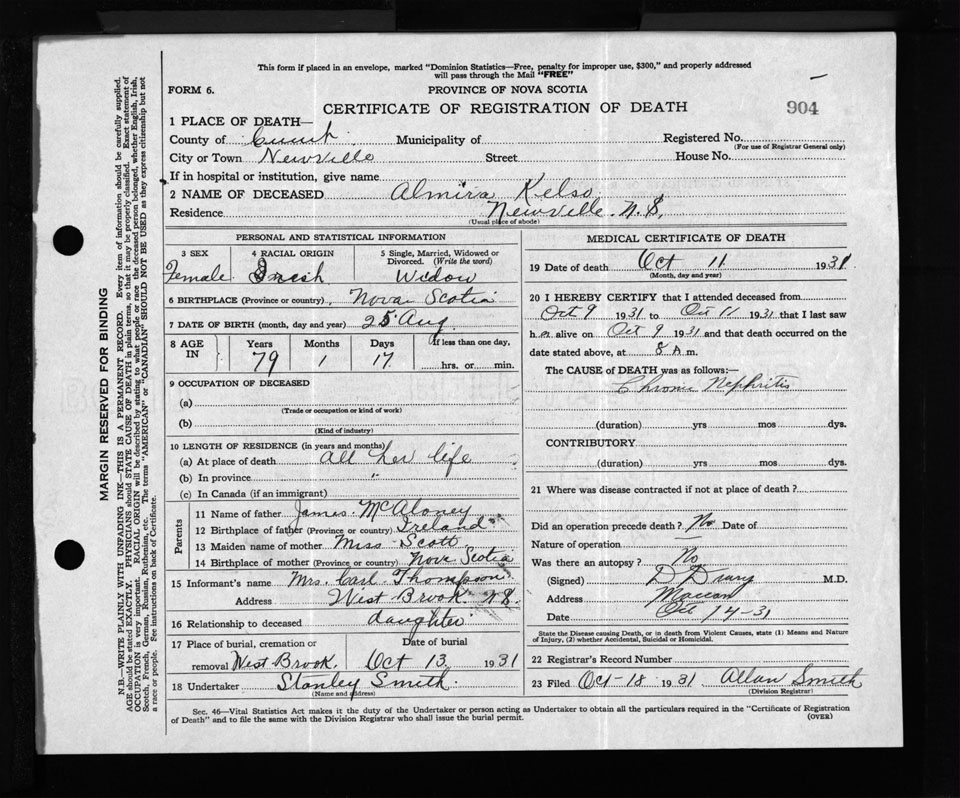 This form if placed in an envelope, marked "Dominion Statistics—Free, penalty for improper use, $300," and properly addressed
will pass through the Mail "FREE"
FORM 6.
PROVINCE OF NOVA SCOTIA
CERTIFICATE OF REGISTRATION OF DEATH
904
1 PLACE OF DEATH—
County of Cumb Municipality of Registered No.
(For use of Registrar General only)
City or Town Newville Street House No.
If in hospital or institution, give name
2 NAME OF DECEASED Almira Kelso
Residence Newville N.S.
(Usual place of abode)
PERSONAL AND STATISTICAL INFORMATION
3 SEX 4 RACIAL ORIGIN 5 Single, Married, Widowed or
Divorced. (Write the word)
Female Irish Widow
6 BIRTHPLACE (Province or country) Nova Scotia
7 DATE OF BIRTH (month, day and year) 25 Aug
8 AGE IN Years Months Days If less than one day,
79 1 17 hrs. or min.
9 OCCUPATION OF DECEASED
(a)
(Trade or occupation or kind of work)
(b)
(Kind of industry)
10 LENGTH OF RESIDENCE (in years and months)
(a) At place of death all her life
(b) In province "
(c) In Canada (if an immigrant)
Parents
11 Name of father James McAloney
12 Birthplace of father (Province or country) Ireland
13 Maiden name of mother Miss Scott
14 Birthplace of mother (Province or country) Nova Scotia
15 Informant's name Mrs. Carl Thompson
Address West Brook N.S.
16 Relationship to deceased daughter
17 Place of burial, cremation or Date of burial
removal West Brook. Oct 13 1931
18 Undertaker Stanley Smith
(Name and address)
MEDICAL CERTIFICATE OF DEATH
19 Date of death Oct 11 1931
(Month, day and year)
20 I HEREBY CERTIFY that I attended deceased from
Oct 9 1931 to Oct 11 1931 that I last saw
h er alive on Oct 9 1931 and that death occurred on the
date stated above, at 8 A m.
The CAUSE of DEATH was as follows:—
Chronic Nephritis
(duration) yrs mos dys.
CONTRIBUTORY
(duration) yrs mos dys.
21 Where was disease contracted if not at place of death?
Did an operation precede death? No Date of
Nature of operation
Was there an autopsy? No
(Signed) D Drury M.D.
Address Maccan
Date Oct 14-31
State the Disease causing Death, or in death from Violent Causes, state (1) Means and Nature
of Injury, (2) whether Accidental, Suicidal or Homicidal.
22 Registrar's Record Number
23 Filed Oct-18 1931 Allan Smith
(Division Registrar)
Sec. 46—Vital Statistics Act makes it the duty of the Undertaker or person acting as Undertaker to obtain all the particulars required in the "Certificate of Registration
of Death" and to file the same with the Division Registrar who shall issue the burial permit.
(OVER)
MARGIN RESERVED FOR BINDING
N.B.—WRITE PLAINLY WITH UNFADING INK—THIS IS A PERMANENT RECORD. Every item of information should be carefully supplied.
AGE should be stated EXACTLY. PHYSICIANS should STATE CAUSE OF DEATH in plain terms, so that it may be properly classified. Exact statement of
OCCUPATION is very important. RACIAL ORIGIN will be described by stating to what people or race the deceased person belonged, whether English, Irish,
Scotch, French, German, Russian, Ruthenian, etc. The terms "AMERICAN" or "CANADIAN" SHOULD NOT BE USED as they express citizenship but not
a race or people. See instructions on back of Certificate.